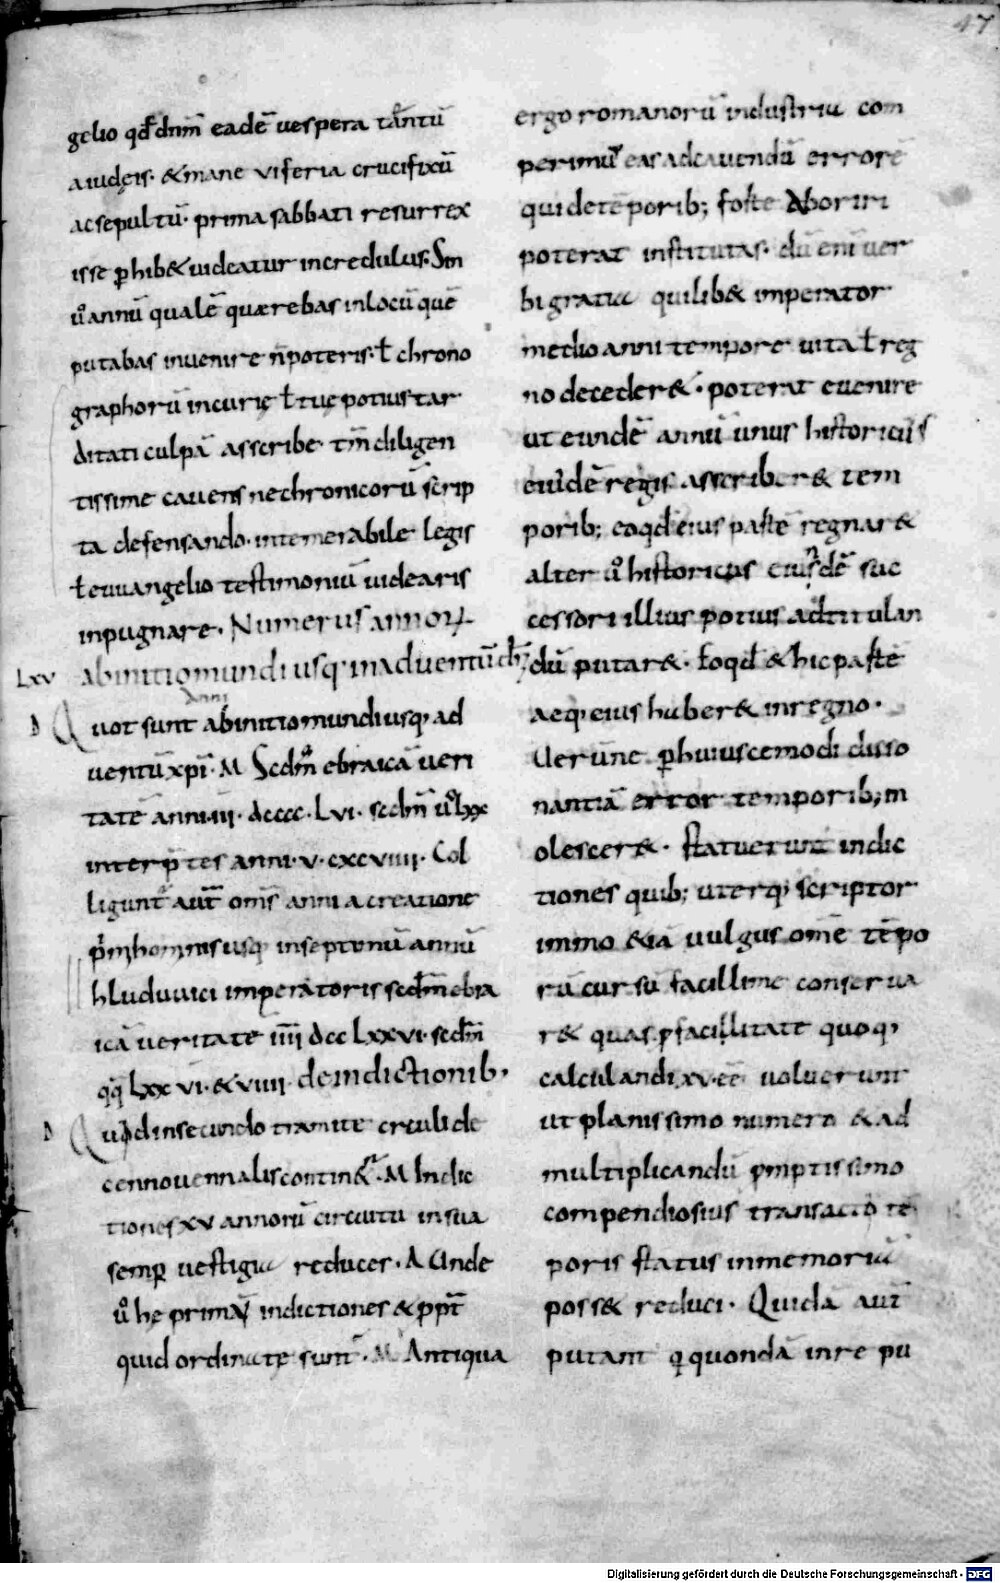 47
gelio qđ dnm̄ eadē uespera tantū
a iudęis · & mane vi feria crucifixū
ac sepultū · prima sabbati resurrex
isse ꝑhib& uideatur incredulus. Sin
ů annū qualē quærebas in locū quē
putabas inuenire n̄ poteris · ł chrono
graphorū incurię ł tuę potius tar
ditati culpā asscribe · tm̄ diligen
tissime cauens ne chronicorū scrip
ta defensando · intemerabile legis
ł euuangelio testimoniū uidearis
inpugnare · Numerus annoꝝ
Lxv ab initio mundi usq; in aduentū
D Quot sunt anni ab initio mundi usq; ad
uentū xpi · M Scdm̄ ebraicā ueri
tatē anni · iii · dcccc · Lvi · scdm̄ ů lxx
interp̄tes anni · v · cxcviiii · Col
ligunt̄ aut̄ om̄s anni a creatione
p̄mi hominis usq; in septimū annū
hludouuici imperatoris scdm̄ ebra
icā ueritatē iiii dcc Lxxvi · scdm̄
Lxx vi · & viiii · de indictionib;
D Quid in secundo tramite circuli de
cennouennalis contin&ur · M Indic
tiones xv annorū circuitu in sua
semꝑ uestigia reduces · Δ Unde
ů he primū indictiones & ꝓpt̄
quid ordinate sunt · M Antiqua
ergo romanorū industria com
perimus eas ad cauendū errorē
qui de tēporib; forte aboriri
poterat institutas · dū enī uer
bi gratia quilib& imperator
medio anni tempore uita ł reg
no deceder& · poterat euenire
ut eundē annū unus historicus
eiusdē regis asscriber& tem
porib; eo qđ eius partē regnar&
alter ů historicus eundē suc
cessori illius potius adtitulan
dū putar& · eo qđ & hic partē
aeq; eius haber& in regno ·
Uerū ne ꝑ huiuscemodi disso
nantiā error temporib; in
olescer& · statuerunt indic
tiones quib; uterq; scriptor
immo & iā uulgus om̄e tēpo
rū cursū facillime conserua
r& quas ꝓ facillitate quoq;
calculandi xv · eē uoluerunt
ut planissimo numero & ad
multiplicandū ꝓmptissimo
compendiosius transacto tē
poris status in memoriā
poss& reduci · Quidā aut̄
putant q quondā in re pu
Digitalisierung gefördert durch die Deutsche Forschungsgemeinschaft - DFG